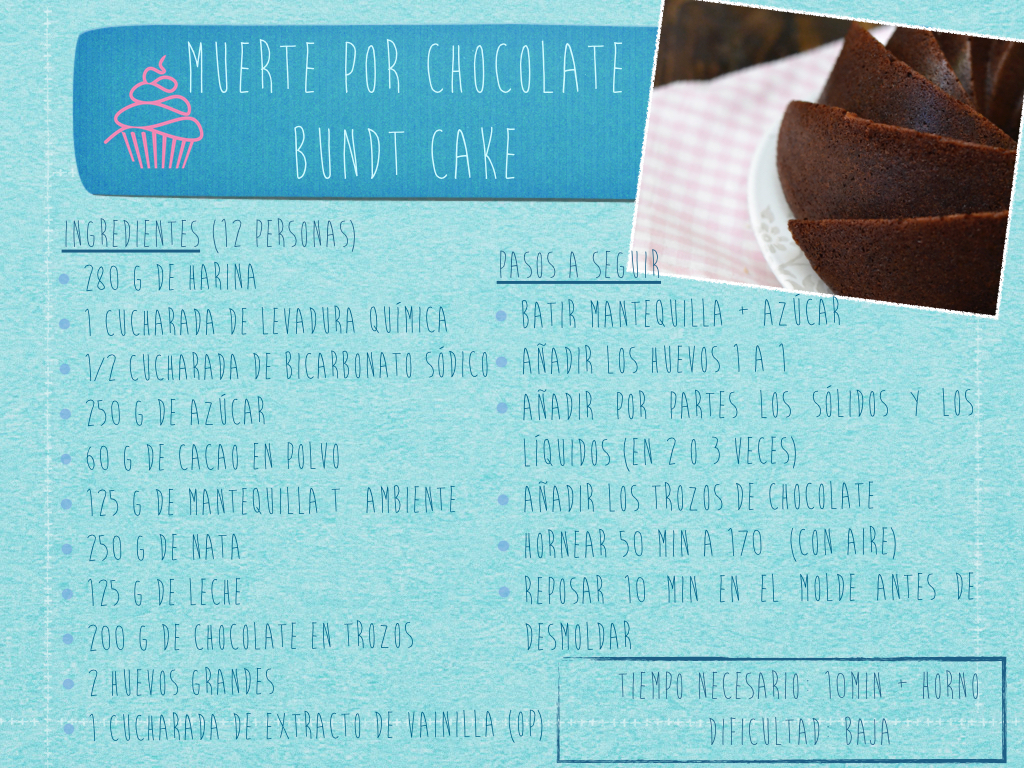 MUERTE POR CHOCOLATE
BUNDT CAKE
INGREDIENTES (12 PERSONAS)
280 G DE HARINA
1 CUCHARADA DE LEVADURA QUÍMICA
1/2 CUCHARADA DE BICARBONATO SÓDICO
250 G DE AZÚCAR
60 G DE CACAO EN POLVO
125 G DE MANTEQUILLA T AMBIENTE
250 G DE NATA
125 G DE LECHE
200 G DE CHOCOLATE EN TROZOS
2 HUEVOS GRANDES
1 CUCHARADA DE EXTRACTO DE VAINILLA (OP)
PASOS A SEGUIR
BATIR MANTEQUILLA + AZÚCAR
AÑADIR LOS HUEVOS 1 A 1
AÑADIR POR PARTES LOS SÓLIDOS Y LOS
LÍQUIDOS (EN 2 O 3 VECES)
AÑADIR LOS TROZOS DE CHOCOLATE
HORNEAR 50 MIN A 170 (CON AIRE)
REPOSAR 10 MIN EN EL MOLDE ANTES DE
DESMOLDAR
TIEMPO NECESARIO: 10MIN + HORNO
DIFICULTAD: BAJA